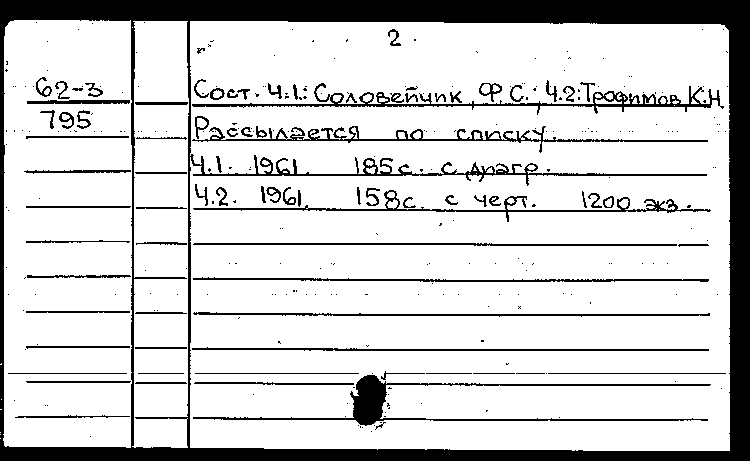 2.
62-3 Сост. Ч.1.: Соловейчик, Ф.С.; Ч.2: Трофимов, К.Н.
795 Рассылается по списку.
Ч.1. 1961. 185 с. с диагр.
Ч.2. 1961. 158 с. с черт. 1200 экз.